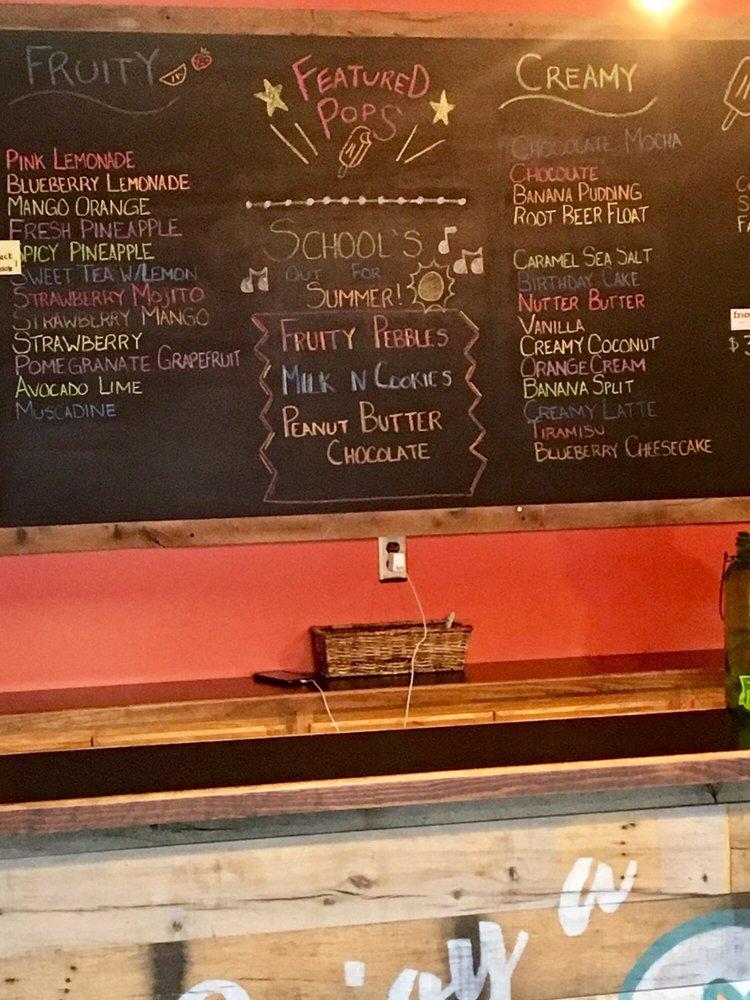 FRUITY
PINK LEMONADE
BLUEBERRY LEMONADE
MANGO ORANGE
FRESH PINEAPPLE
SPICY PINEAPPLE
SWEET TEA W/LEMON
STRAWBERRY MOJITO
STRAWBERRY MANGO
STRAWBERRY
POMEGRANATE GRAPEFRUIT
AVOCADO LIME
MUSCADINE
FEATURED
POPS
SCHOOL'S
OUT FOR
SUMMER!
FRUITY PEBBLES
MILK N COOKIES
PEANUT BUTTER
CHOCOLATE
CREAMY
CHOCOLATE MOCHA
CHOCOLATE
BANANA PUDDING
ROOT BEER FLOAT
CARAMEL SEA SALT
BIRTHDAY CAKE
NUTTER BUTTER
VANILLA
CREAMY COCONUT
ORANGE CREAM
BANANA SPLIT
CREAMY LATTE
TIRAMISU
BLUEBERRY CHEESECAKE
$3
a